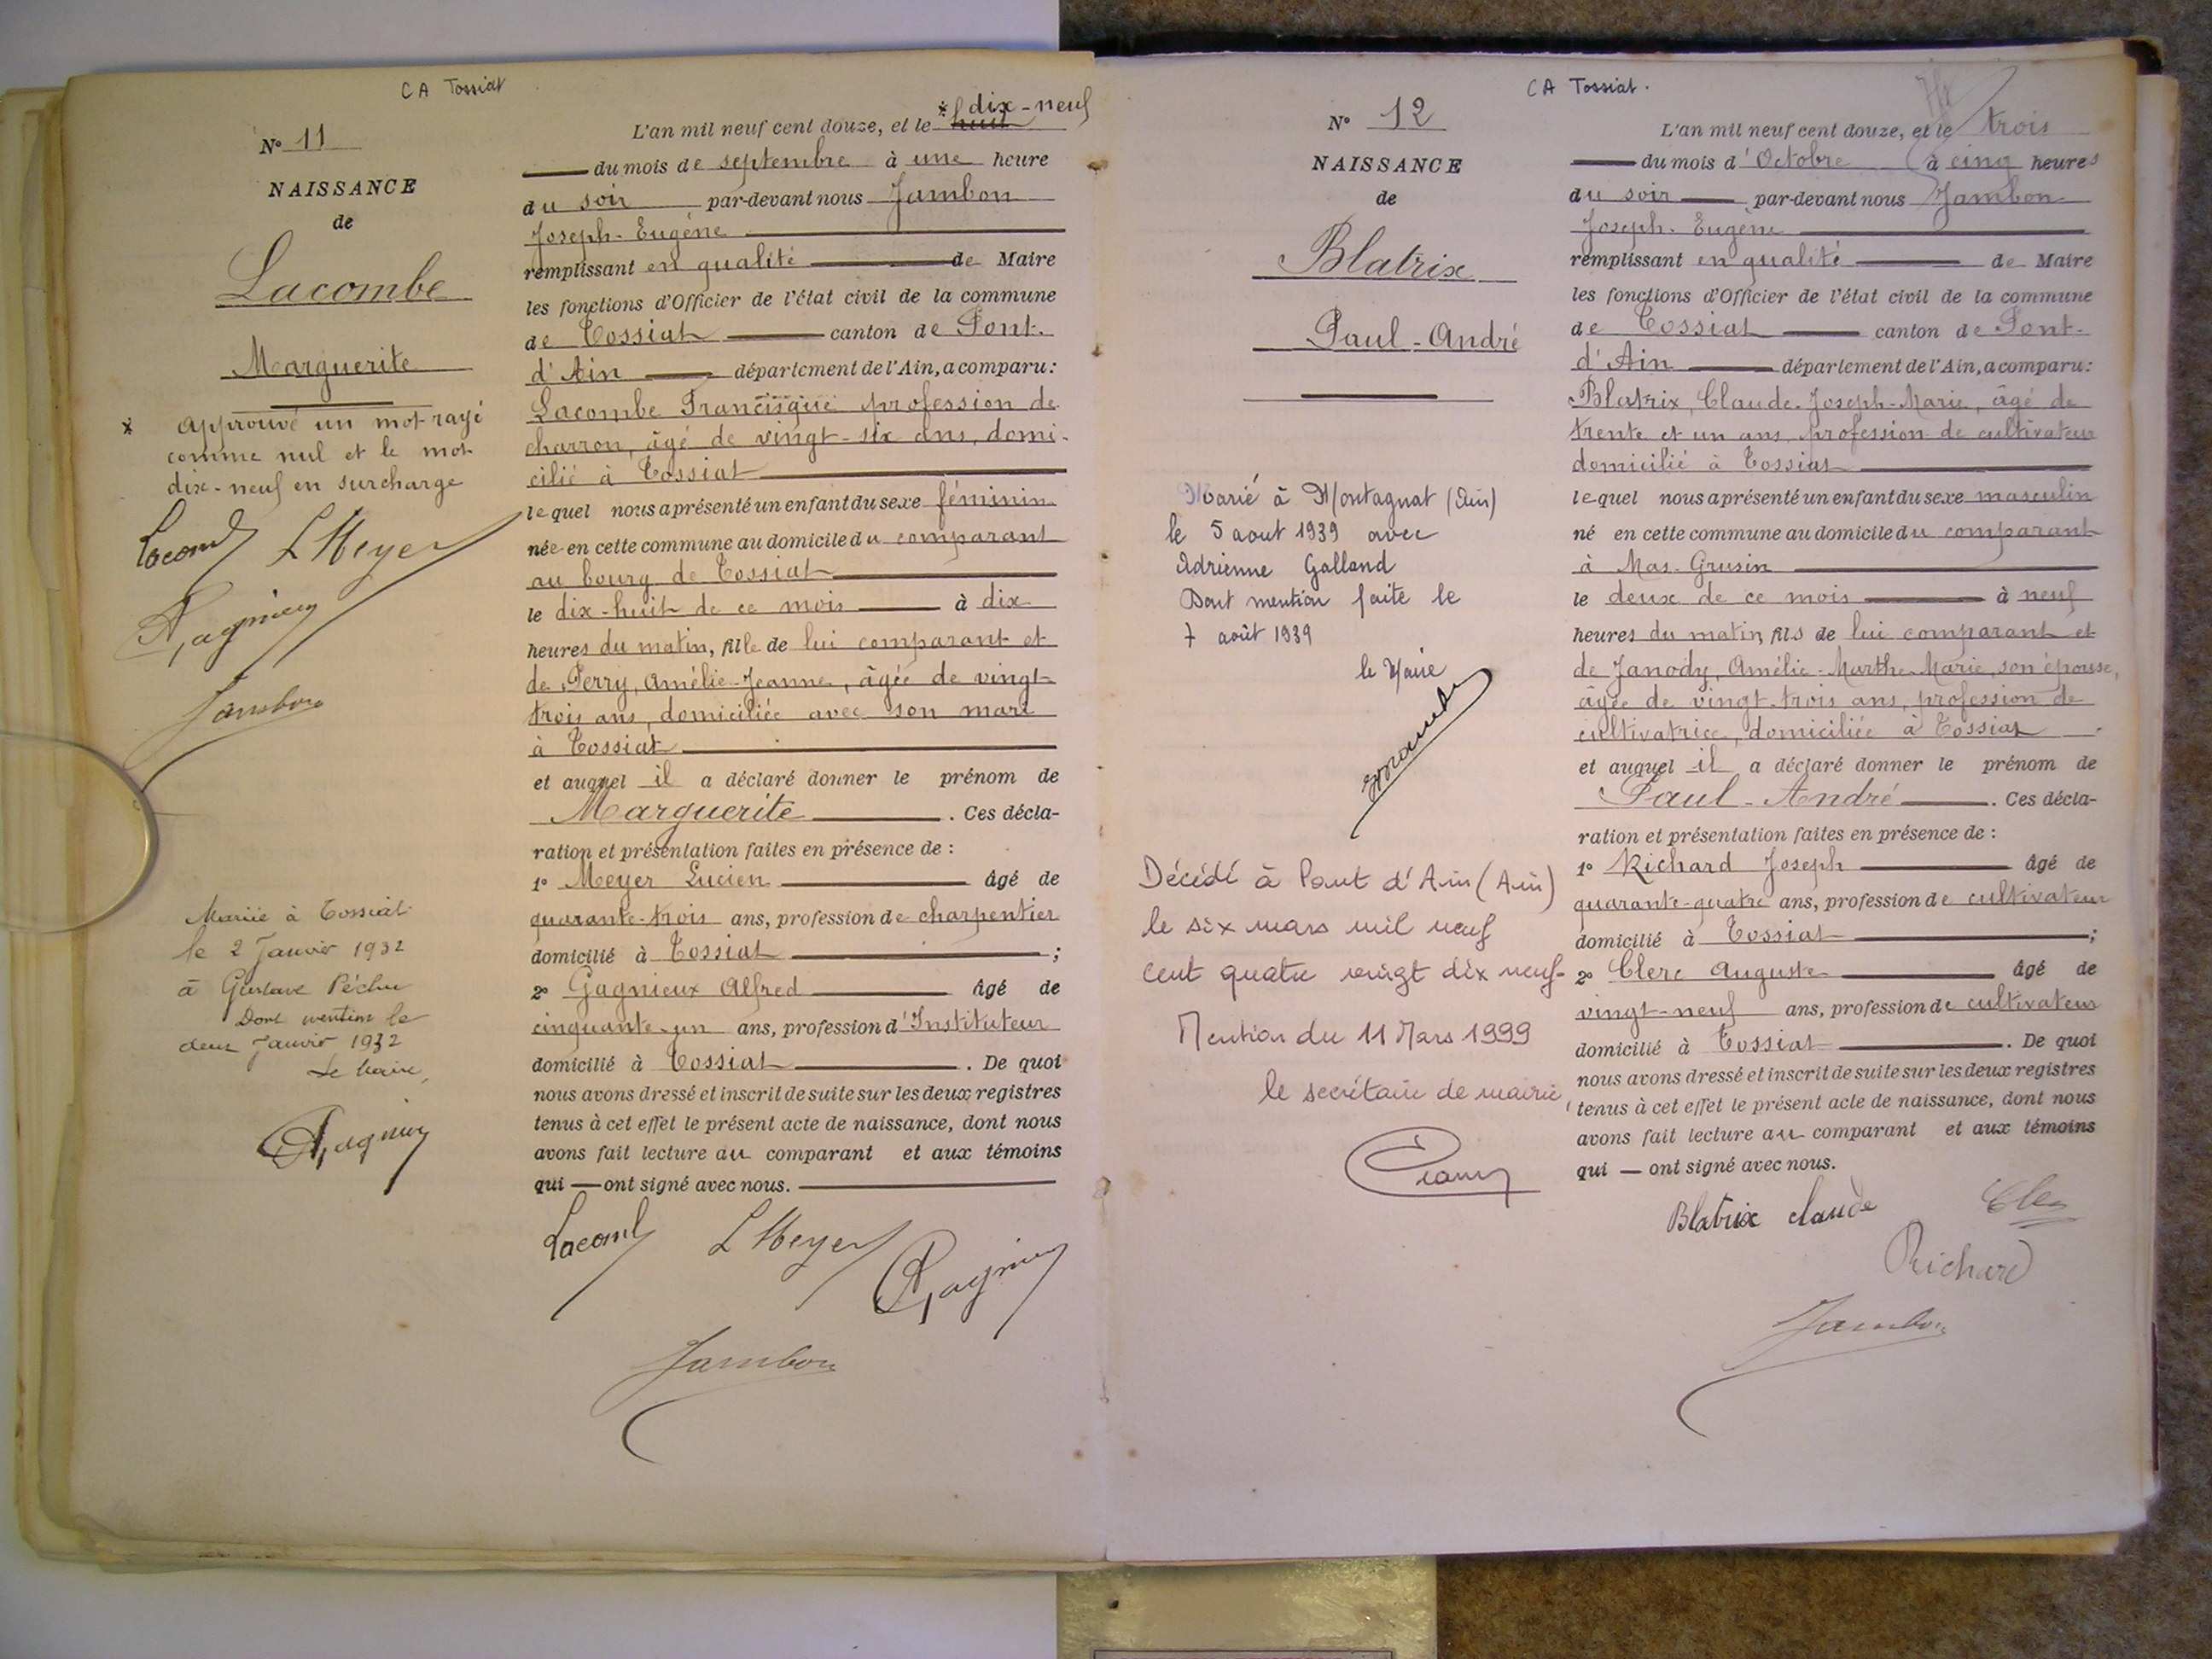 CA Tossiat
N° 11
NAISSANCE
de
Lacombe
Marguerite
* Approuvé un mot rayé
comme nul et le mot
dix-neuf en surcharge
Lacombe L Meyer
A Gagnieux
Jambon
Mariée à Tossiat
le 2 Janvier 1932
à Gustave Péchu
Dont mention le
deux Janvier 1932
Le Maire,
A Gagnieux
* dix-neuf
L'an mil neuf cent douze, et le huit
du mois de septembre à une heure
du soir par-devant nous Jambon
Joseph-Eugène
remplissant en qualité de Maire
les fonctions d'Officier de l'état civil de la commune
de Tossiat canton de Pont-
d'Ain département de l'Ain, a comparu:
Lacombe Francisque profession de
charron, âgé de vingt-six ans, domi-
cilié à Tossiat
lequel nous a présenté un enfant du sexe féminin
née en cette commune au domicile du comparant
au bourg de Tossiat
le dix-huit de ce mois à dix
heures du matin, fille de lui comparant et
de Perry, Amélie-Jeanne, âgée de vingt-
trois ans, domiciliée avec son mari
à Tossiat
et auquel il a déclaré donner le prénom de
Marguerite. Ces décla-
ration et présentation faites en présence de :
1° Meyer Lucien âgé de
quarante-trois ans, profession de charpentier
domicilié à Tossiat ;
2° Gagnieux Alfred âgé de
cinquante-un ans, profession d'Instituteur
domicilié à Tossiat. De quoi
nous avons dressé et inscrit de suite sur les deux registres
tenus à cet effet le présent acte de naissance, dont nous
avons fait lecture au comparant et aux témoins
qui — ont signé avec nous.
Lacombe L Meyer A Gagnieux
Jambon
CA Tossiat.
N° 12
NAISSANCE
de
Blatrix
Paul-André
Marié à Montagnat (Ain)
le 5 aout 1939 avec
Adrienne Galland
Dont mention faite le
7 août 1939
le Maire
Décédé à Pont d'Ain (Ain)
le six mars mil neuf
cent quatre vingt dix neuf-
Mention du 11 Mars 1999
le secrétaire de mairie,
L'an mil neuf cent douze, et le trois
du mois d'Octobre à cinq heures
du soir par-devant nous Jambon
Joseph-Eugène
remplissant en qualité de Maire
les fonctions d'Officier de l'état civil de la commune
de Tossiat canton de Pont-
d'Ain département de l'Ain, a comparu:
Blatrix, Claude-Joseph-Marie, âgé de
trente et un ans, profession de cultivateur
domicilié à Tossiat
lequel nous a présenté un enfant du sexe masculin
né en cette commune au domicile du comparant
à Mas-Grusin
le deux de ce mois à neuf
heures du matin, fils de lui comparant et
de Janody, Amélie-Marthe-Marie, son épouse,
âgée de vingt-trois ans, profession de
cultivatrice, domiciliée à Tossiat
et auquel il a déclaré donner le prénom de
Paul-André. Ces décla-
ration et présentation faites en présence de :
1° Richard Joseph âgé de
quarante-quatre ans, profession de cultivateur
domicilié à Tossiat ;
2° Clerc Auguste âgé de
vingt-neuf ans, profession de cultivateur
domicilié à Tossiat. De quoi
nous avons dressé et inscrit de suite sur les deux registres
tenus à cet effet le présent acte de naissance, dont nous
avons fait lecture au comparant et aux témoins
qui — ont signé avec nous.
Blatrix Claude Clerc
Richard
Jambon